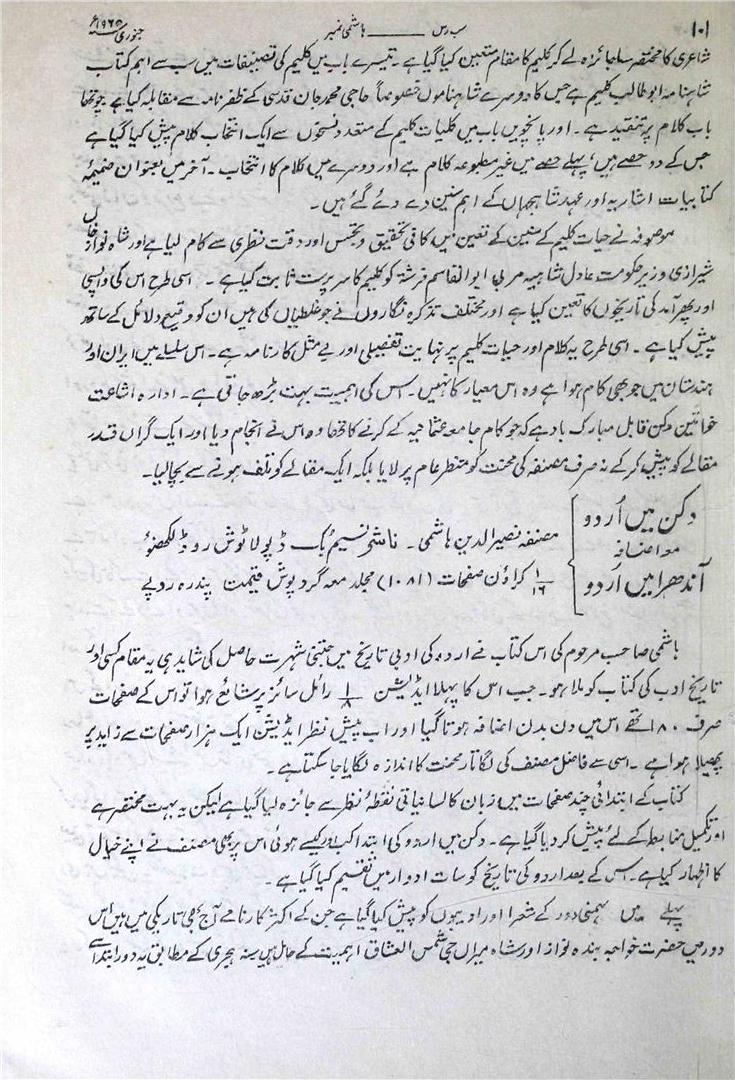 ۱۰۱ سب رس ــــــــ ہاشمی نمبر جنوری ۱۹۶۵ء
شاعری کا مختصر سا جائزہ لے کر کلیم کا مقام متعین کیا گیا ہے۔ تیسرے باب میں کلیم کی تصنیفات میں سب سے اہم کتاب
شاہنامہ ابو طالب کلیم ہے جس کا دوسرے شاہناموں خصوصاً حاجی محمد جان قدسی کے ظفر نامہ سے مقابلہ کیا ہے چوتھا
باب کلام پر تنقید ہے۔ اور پانچویں باب میں کلیات کلیم کے متعدد نسخوں سے ایک انتخاب کلام پیش کیا گیا ہے
جس کے دو حصے ہیں، پہلے حصے میں غیر مطبوعہ کلام ہے اور دوسرے میں کلام کا انتخاب۔ آخر میں بعنوان ضمیمۂ
کتابیات اشاریہ اور عہد شاہجہاں کے اہم سنین دے دئے گئے ہیں۔
موصوفہ نے حیات کلیم کے سنین کے تعین میں کافی تحقیق و تجسس اور دقت نظری سے کام لیا ہے اور شاہ نواز خاں
شیرازی وزیر حکومت عادل شاہیہ مربی ابوالقاسم فرشتہ کو کلیم کا سرپرست ثابت کیا ہے۔ اسی طرح اس کی واپسی
اور پھر آمد کی تاریخوں کا تعین کیا ہے اور مختلف تذکرہ نگاروں نے جو غلطیاں کی ہیں ان کو وقیع دلائل کے ساتھ
پیش کیا ہے۔ اسی طرح یہ کلام اور حیات کلیم پر نہایت تفصیلی اور بے مثل کارنامہ ہے۔ اس سلسلے میں ایران اور
ہندستان میں جو بھی کام ہوا ہے وہ اس معیار کا نہیں۔ اس کی اہمیت بہت بڑھ جاتی ہے۔ ادارہ اشاعت
خواتین دکن قابل مبارک باد ہے کہ جو کام جامعہ عثمانیہ کے کرنے کا تھا وہ اس نے انجام دیا اور ایک گراں قدر
مقالے کو پیش کر کے نہ صرف مصنفہ کی محنت کو منظر عام پر لایا بلکہ ایک مقالے کو تلف ہونے سے بچا لیا۔
دکن میں اُردو
معہ اضافہ
آندھرا میں اُردو
مصنفہ نصیر الدین ہاشمی۔ ناشر نسیم بُک ڈپو لاٹوش روڈ لکھنؤ
۱/۱۶ کراؤن صفحات (۱۰۸۱) مجلد معہ گرد پوش قیمت پندرہ روپے
ہاشمی صاحب مرحوم کی اس کتاب نے اردو کی ادبی تاریخ میں جتنی شہرت حاصل کی شاید ہی یہ مقام کسی اور
تاریخ ادب کی کتاب کو ملا ہو۔ جب اس کا پہلا ایڈیشن ۱/۸ رائل سائز پر شائع ہوا تو اس کے صفحات
صرف ۱۸۰ تھے اس میں دن بدن اضافہ ہوتا گیا اور اب پیش نظر ایڈیشن ایک ہزار صفحات سے زاید پر
پھیلا ہوا ہے۔ اسی سے فاضل مصنف کی لگاتار محنت کا اندازہ لگایا جا سکتا ہے۔
کتاب کے ابتدائی چند صفحات میں زبان کا لسانیاتی نقطۂ نظر سے جائزہ لیا گیا ہے لیکن یہ بہت مختصر ہے
اور تکمیل ضابطہ کے لئے پیش کر دیا گیا ہے۔ دکن میں اردو کی ابتدا کب اور کیسے ہوئی اس پر بھی مصنف نے اپنے خیال
کا اظہار کیا ہے۔ اس کے بعد اردو کی تاریخ کو سات ادوار میں تقسیم کیا گیا ہے۔
پہلے میں بہمنی دور کے شعرا اور ادیبوں کو پیش کیا گیا ہے جن کے اکثر کارنامے آج بھی تاریکی میں ہیں اس
دور میں حضرت خواجہ بندہ نواز اور شاہ میراں جی شمس العشاق اہمیت کے حامل ہیں سنہ ہجری کے مطابق یہ دور ابتدائے